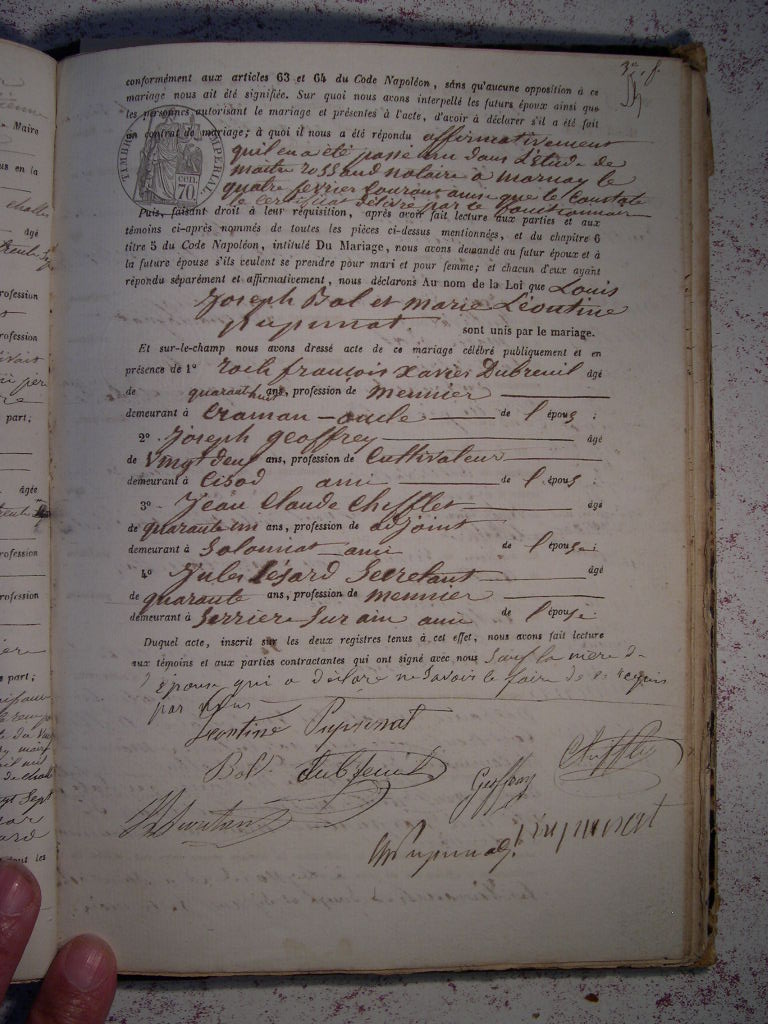 3e. f.
conformément aux articles 63 et 64 du Code Napoléon, sans qu'aucune opposition à ce
mariage nous ait été signifiée. Sur quoi nous avons interpellé les futurs époux ainsi que
les personnes autorisant le mariage et présentes à l'acte, d'avoir à déclarer s'il a été fait
un contrat de mariage; à quoi il nous a été répondu affirmativement
qu'il en a été passé un dans l'Etude de
maitre rossand notaire a marnay le
quatre fevrier courant ainsi que le constate
le certificat délivré par le fonctionnaire
TIMBRE IMPERIAL
70 cen.
Puis, faisant droit à leur réquisition, après avoir fait lecture aux parties et aux
témoins ci-après nommés de toutes les pièces ci-dessus mentionnées, et du chapitre 6
titre 5 du Code Napoléon, intitulé Du Mariage, nous avons demandé au futur époux et à
la future épouse s'ils veulent se prendre pour mari et pour femme; et chacun d'eux ayant
répondu séparément et affirmativement, nous déclarons Au nom de la Loi que Louis
Joseph Bol et marie Léontine
pupunat. sont unis par le mariage.
Et sur-le-champ nous avons dressé acte de ce mariage célébré publiquement et en
présence de 1° roch françois Xavier Dubreuil âgé
de quarant huit ans, profession de meunier
demeurant à Craman - oncle de l'épous;
2° Joseph geoffrey âgé
de Vingt deux ans, profession de Cultivateur
demeurant à Cisod ami de l'épous
3° Jean Claude Chifflet âgé
de quarante un ans, profession de adjoint
demeurant à Solonnat ami de l'épouse;
4° Jules Césard Secretant âgé
de quarante ans, profession de meunier
demeurant à Serriere Sur ain ami de l'épouse
Duquel acte, inscrit sur les deux registres tenus à cet effet, nous avons fait lecture
aux témoins et aux parties contractantes qui ont signé avec nous Sauf la mere de
l'épouse qui a déclaré ne savoir le faire de ce requis
par nous
Leontine Pupunat
Bol. Dubreuil Geoffrey Chifflet
Secretant
Pupunat. Pupunat